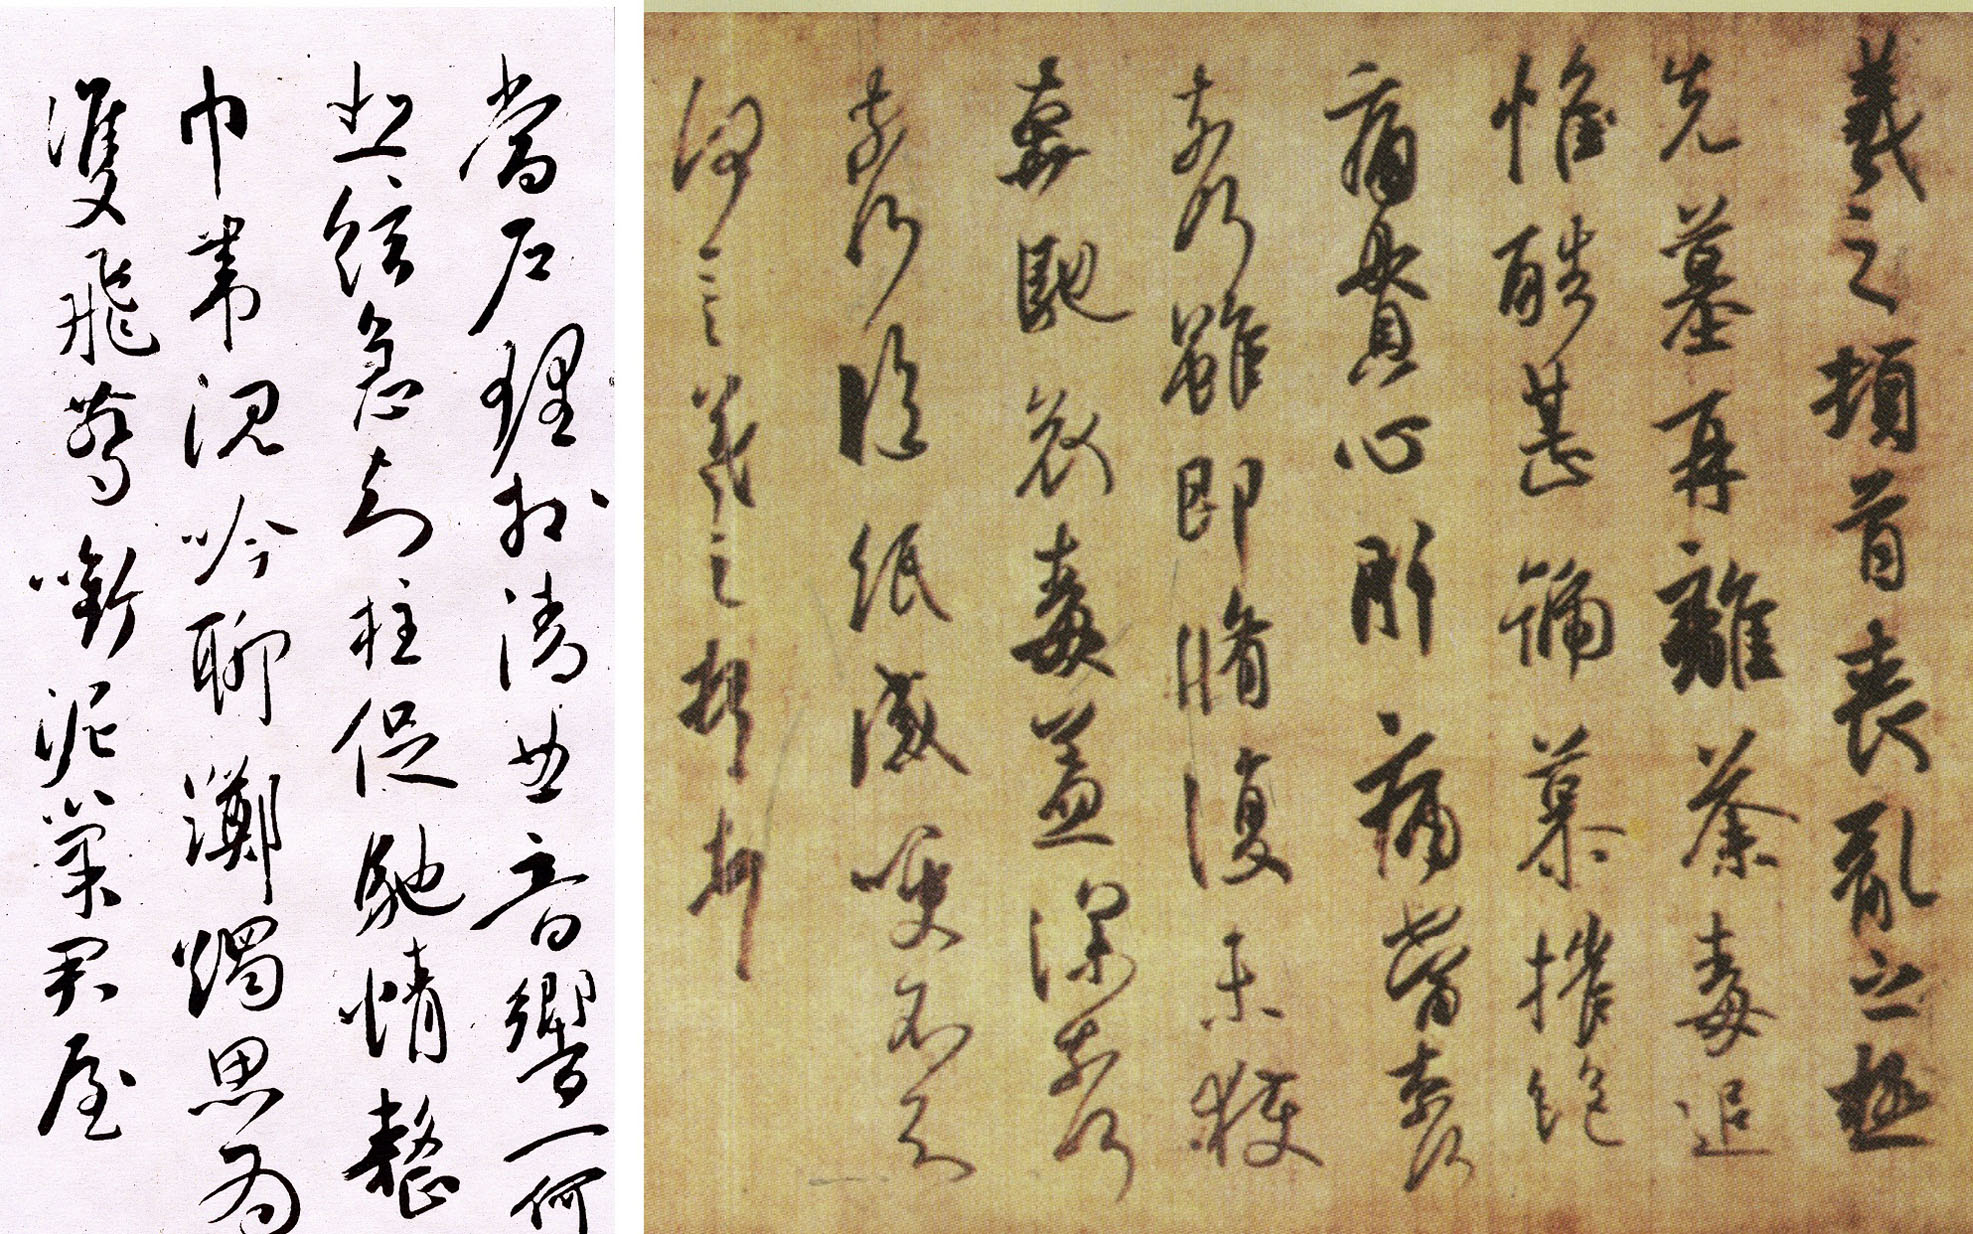 羲之頓首喪亂之極
先墓再離荼毒追
惟酷甚號慕摧絕
痛貫心肝痛當奈何
奈何雖即脩復未獲
奔馳哀毒益深奈何
奈何臨紙感哽不知
何言羲之頓首頓首
當戶理清曲音響一何
悲絃急知柱促馳情整
巾帶沈吟聊躑躅思為
雙飛燕銜泥巢君屋